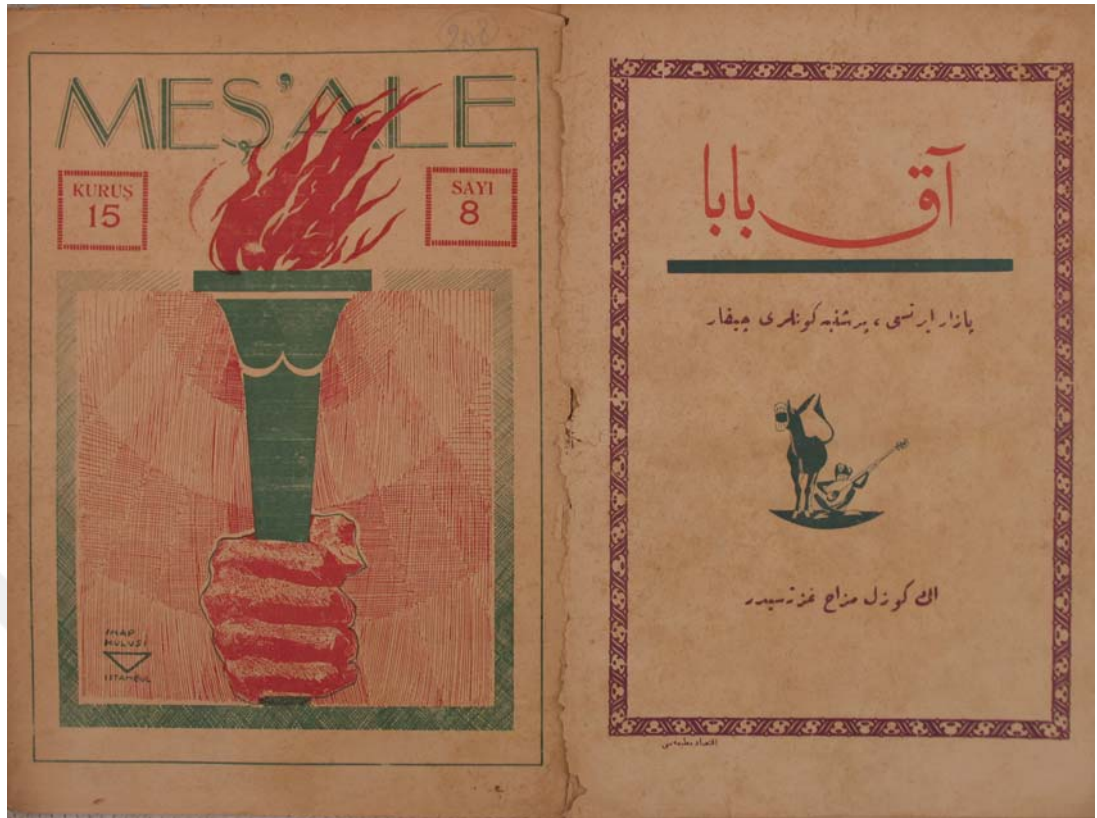 MEŞ'ALE
KURUŞ
15
SAYI
8
IHAP
HULUSİ
İSTANBUL
آق بابا
پازار ایرتسی ، پرشنبه كونلری چیقار
اك كوزل مزاح غزته سیدر
اقتصاد مطبعه سی